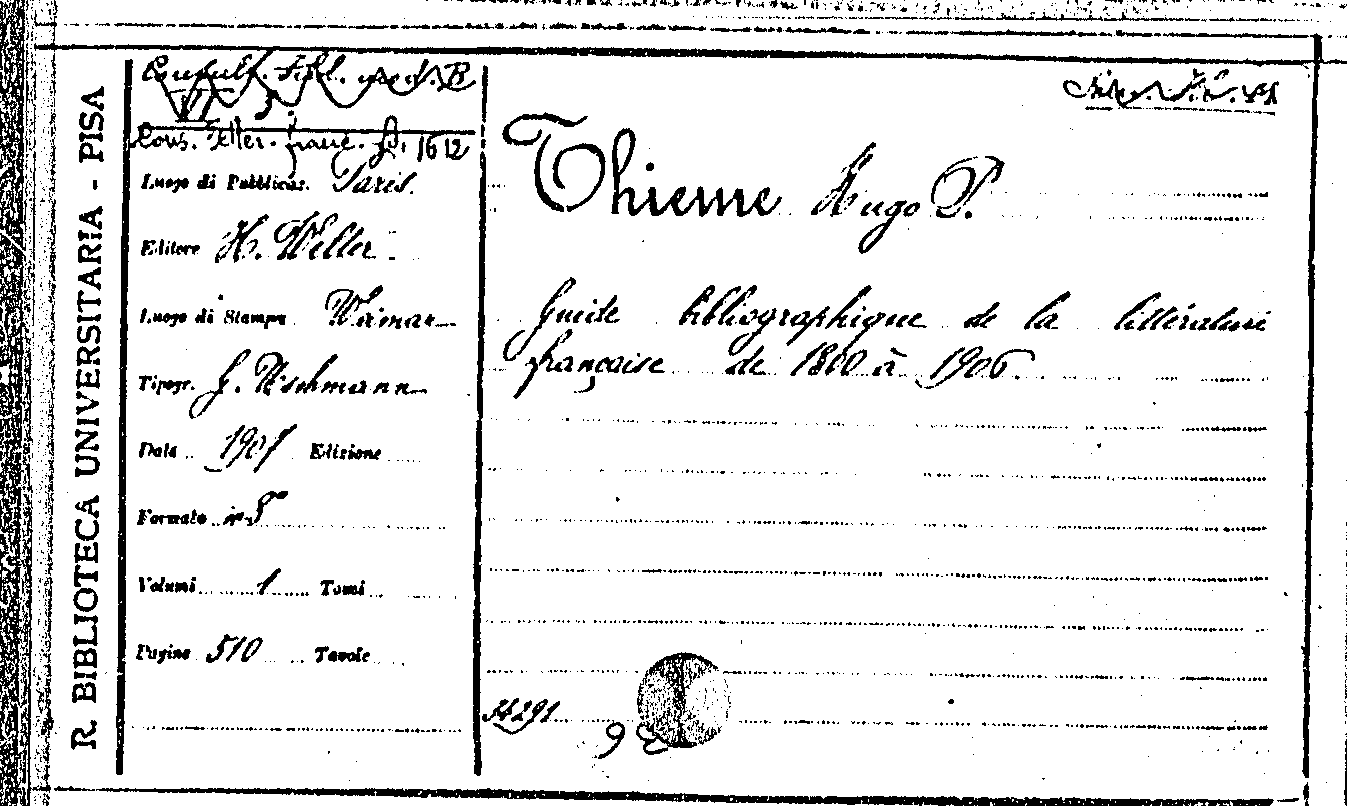 R. BIBLIOTECA UNIVERSITARIA - PISA
Lett. franc. 1612
Luogo di Pubblicaz. Paris.
Editore H. Welter
Luogo di Stampa Weimar
Tipogr. G. Uschmann
Data 1907 Edizione
Formato in 8
Volumi 1 Tomi
Pagine 510 Tavole
Thieme Hugo P.
Guide bibliographique de la littérature
française de 1800 à 1906